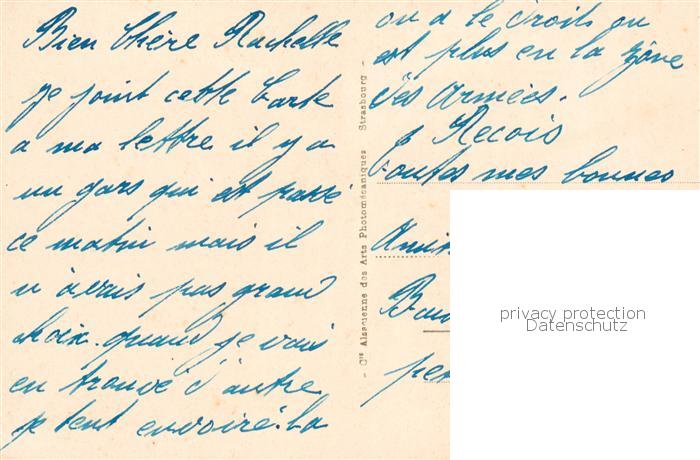 Bien Chère Rachelle
je joint cette Carte
a ma lettre il y a
un gars qui est passé
ce matin mais il
n'avais pas grand
choix. quand je vais
en trouvé d'autre
je tent envoiré. La
on a le droit on
est plus en la zône
des Armées.
Recois
toutes mes bonnes
Amit
- Cie Alsacienne des Arts Photomécaniques Strasbourg -
privacy protection
Datenschutz